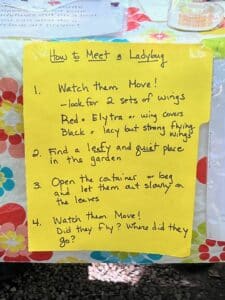 How to Meet a Ladybug
1. Watch them Move!
- look for 2 sets of wings
Red = Elytra or wing covers
Black = lacy but strong flying
wings
2. Find a leafy and quiet place
in the garden
3. Open the container or bag
and let them out slowly on
the leaves
4. Watch them Move!
Did they fly? Where did they
go?